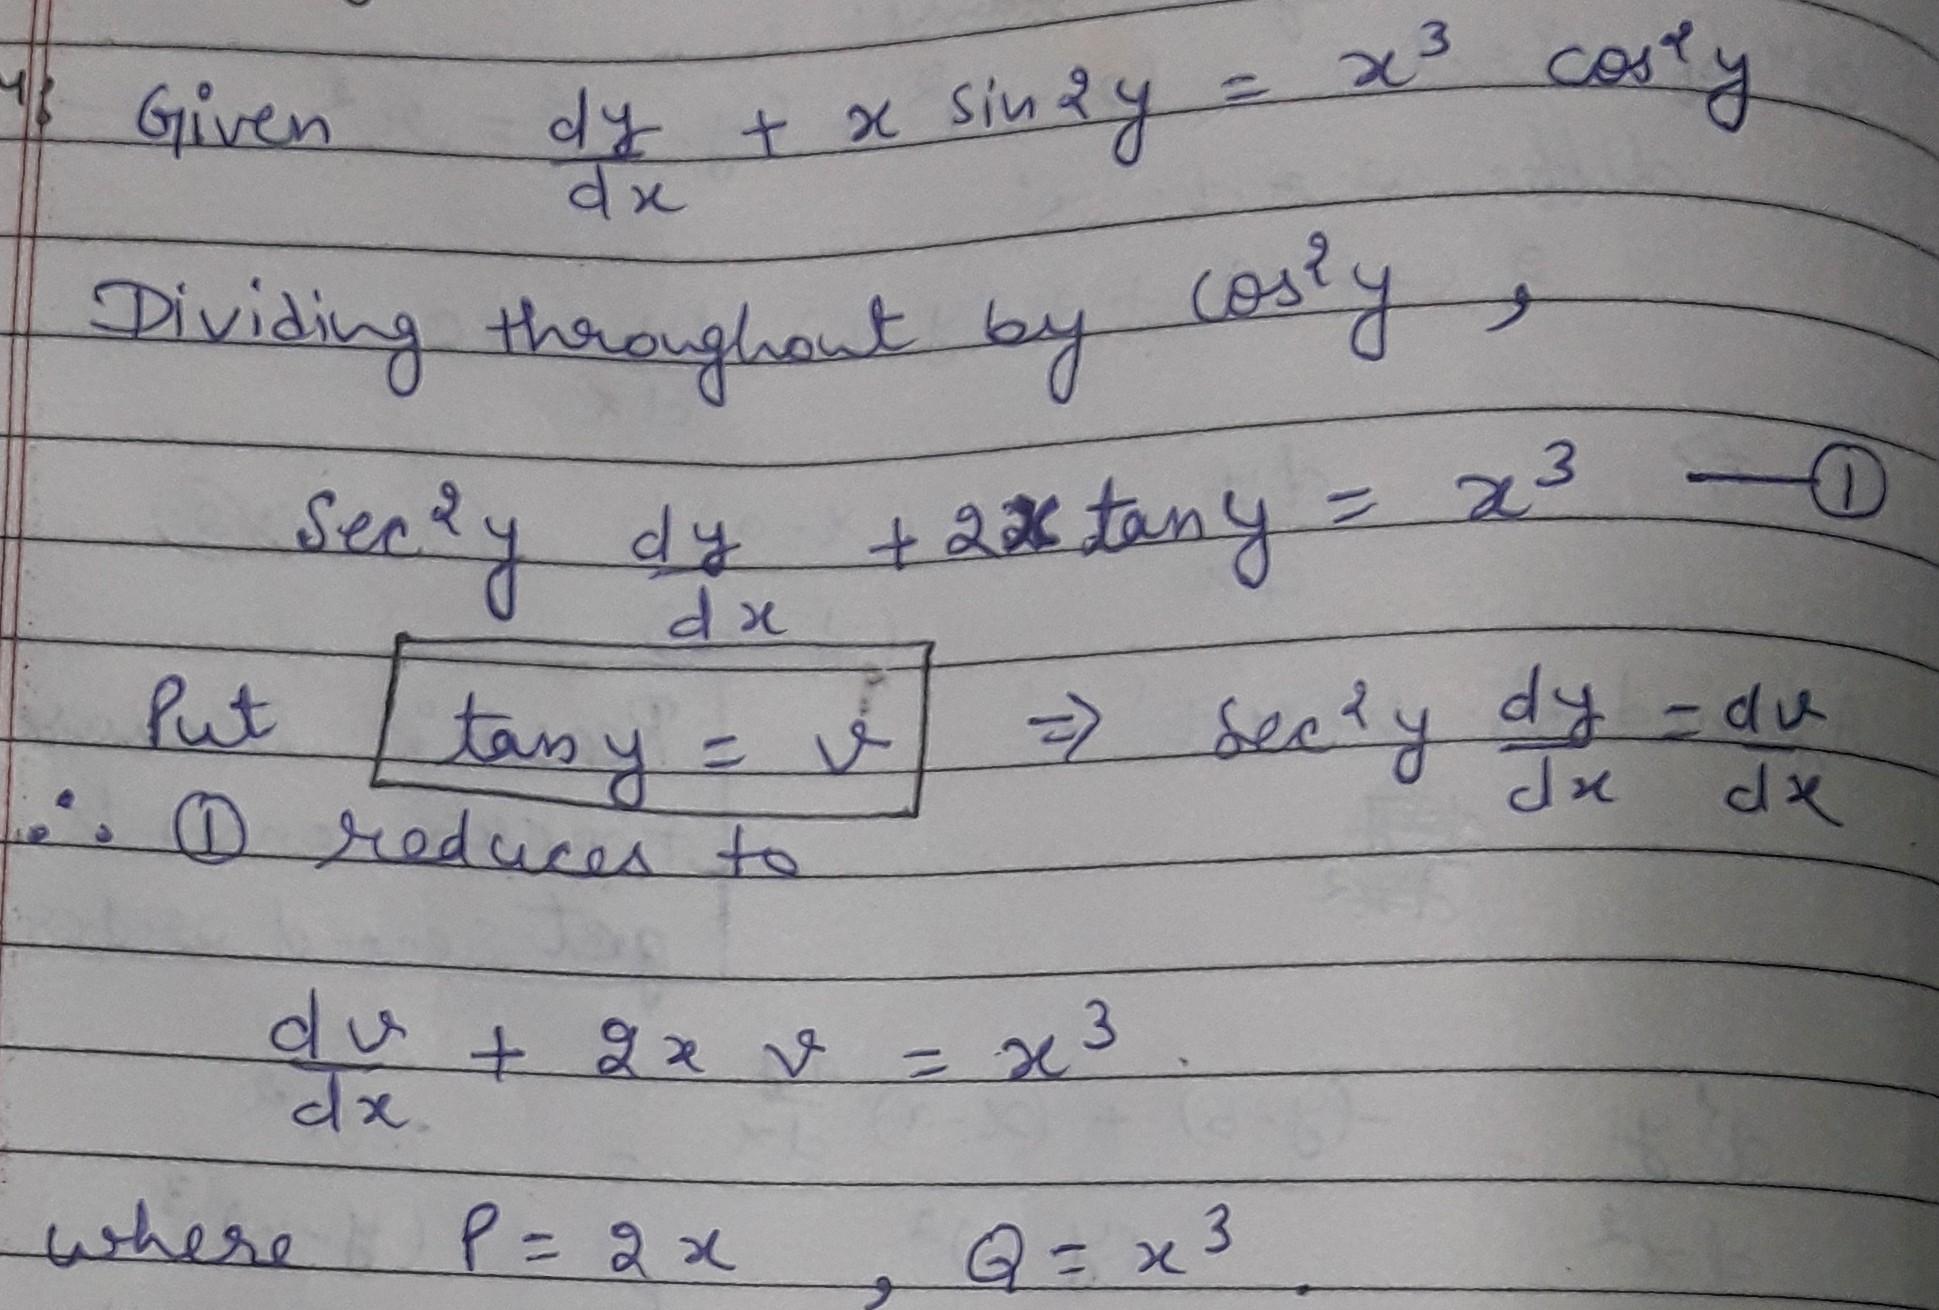 Given dy/dx + x sin2y = x³ cos²y
Dividing throughout by cos²y ,
Sec²y dy/dx + 2x tan y = x³ —①
Put tan y = v ⇒ Sec²y dy/dx = dv/dx
∴ ① reduces to
dv/dx + 2x v = x³.
where P = 2x , Q = x³.